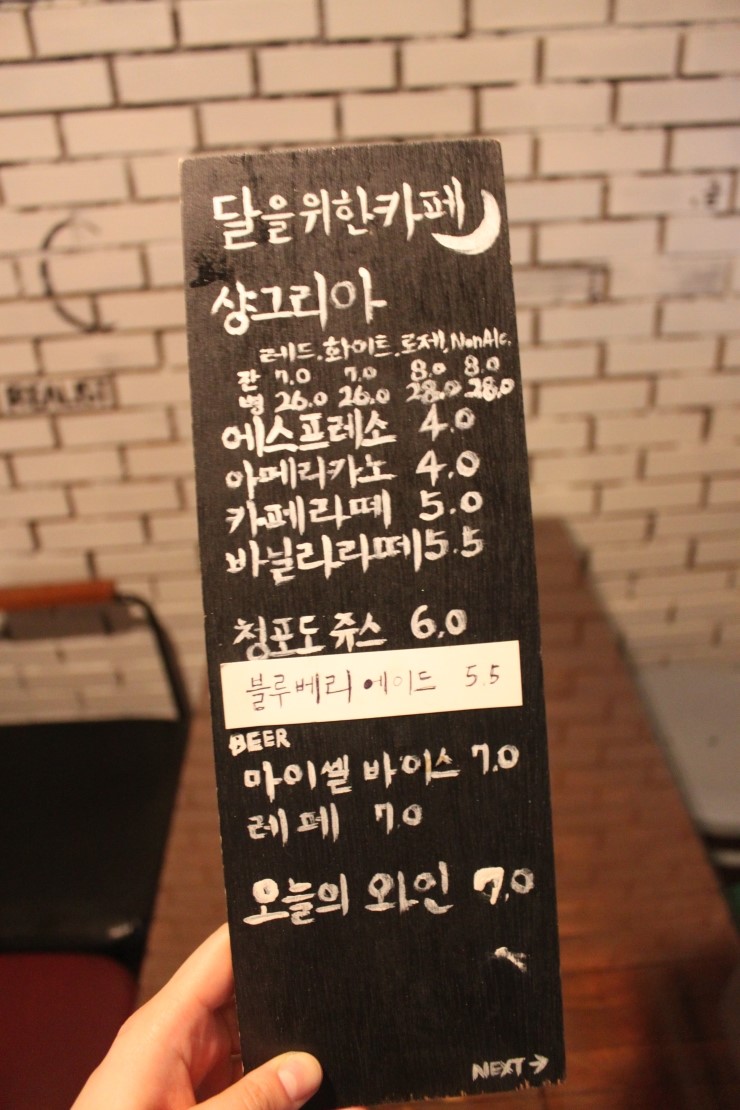 달을위한카페
샹그리아
레드.화이트.로제.NonAlc.
잔 7.0 7.0 8.0 8.0
병 26.0 26.0 28.0 28.0
에스프레소 4.0
아메리카노 4.0
카페라떼 5.0
바닐라라떼 5.5
청포도 쥬스 6.0
블루베리에이드 5.5
BEER
마이셀 바이스 7.0
레페 7.0
오늘의 와인 7.0
NEXT →